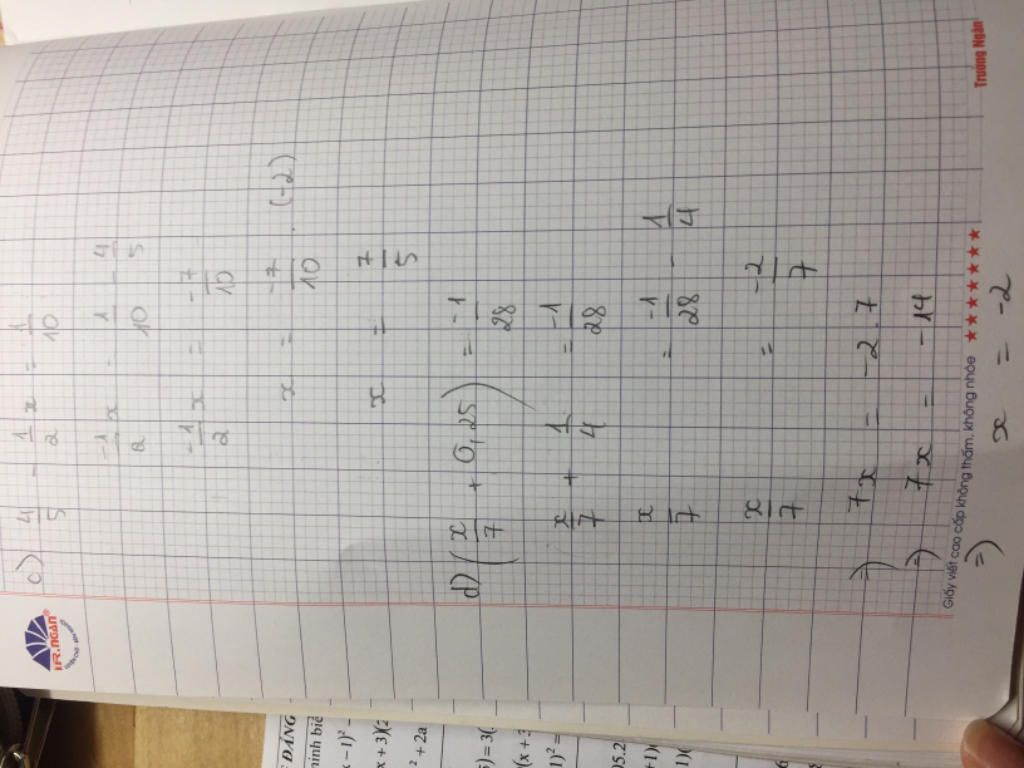 TR.NGÂN
c) 4/5 - 1/2 x = 1/10
-1/2 x = 1/10 - 4/5
-1/2 x = -7/10
x = -7/10 . (-2)
x = 7/5
d) (x/7 + 0,25) = -1/28
x/7 + 1/4 = -1/28
x/7 = -1/28 - 1/4
x/7 = -2/7
=) 7x = -2.7
=) 7x = -14
Giấy viết cao cấp không thấm, không nhòe ★★★★★★★ Trường Ngân
=) x = -2
ĐẲNG
minh biể
x - 1)² -
x + 3)(2
² + 2a
) = 3(
(x + 3
1)² =
05.2
+1)(
1)(